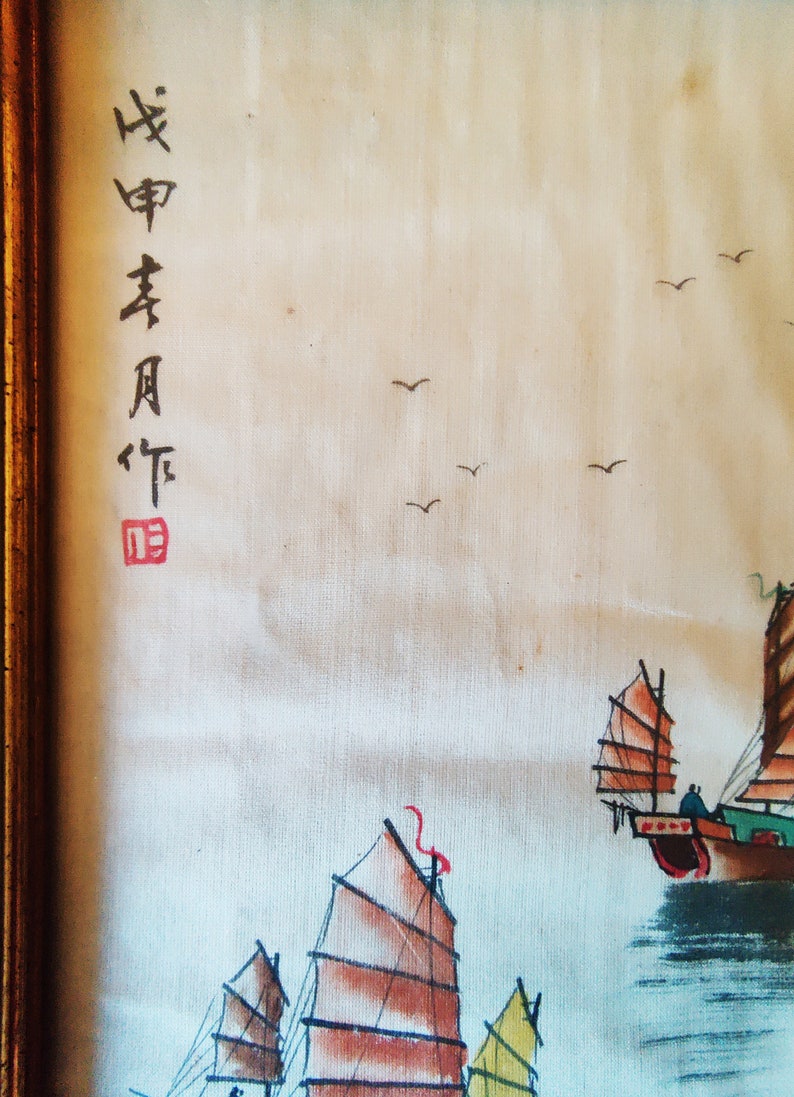 戊申春月作